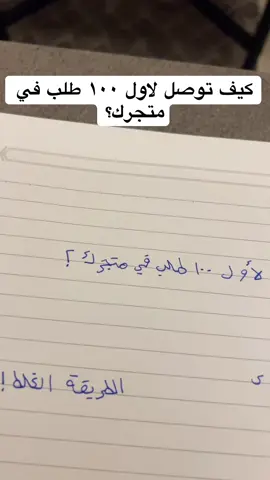 كيف توصل لاول ١٠٠ طلب في
متجرك؟
لأول ١٠٠ طلب في متجرك؟
الطريقة الغلط!